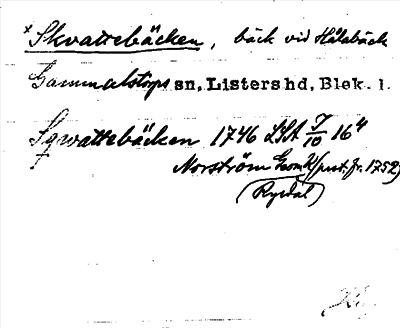 *Skvattebäcken, bäck vid Hålabäck
Gammalstorps sn, Listers hd, Blek. l.
Sqvattebäcken 1746 LSA 7/10 16⁴
Norström Geom. (perf. fr. 1752)
(Rydal)